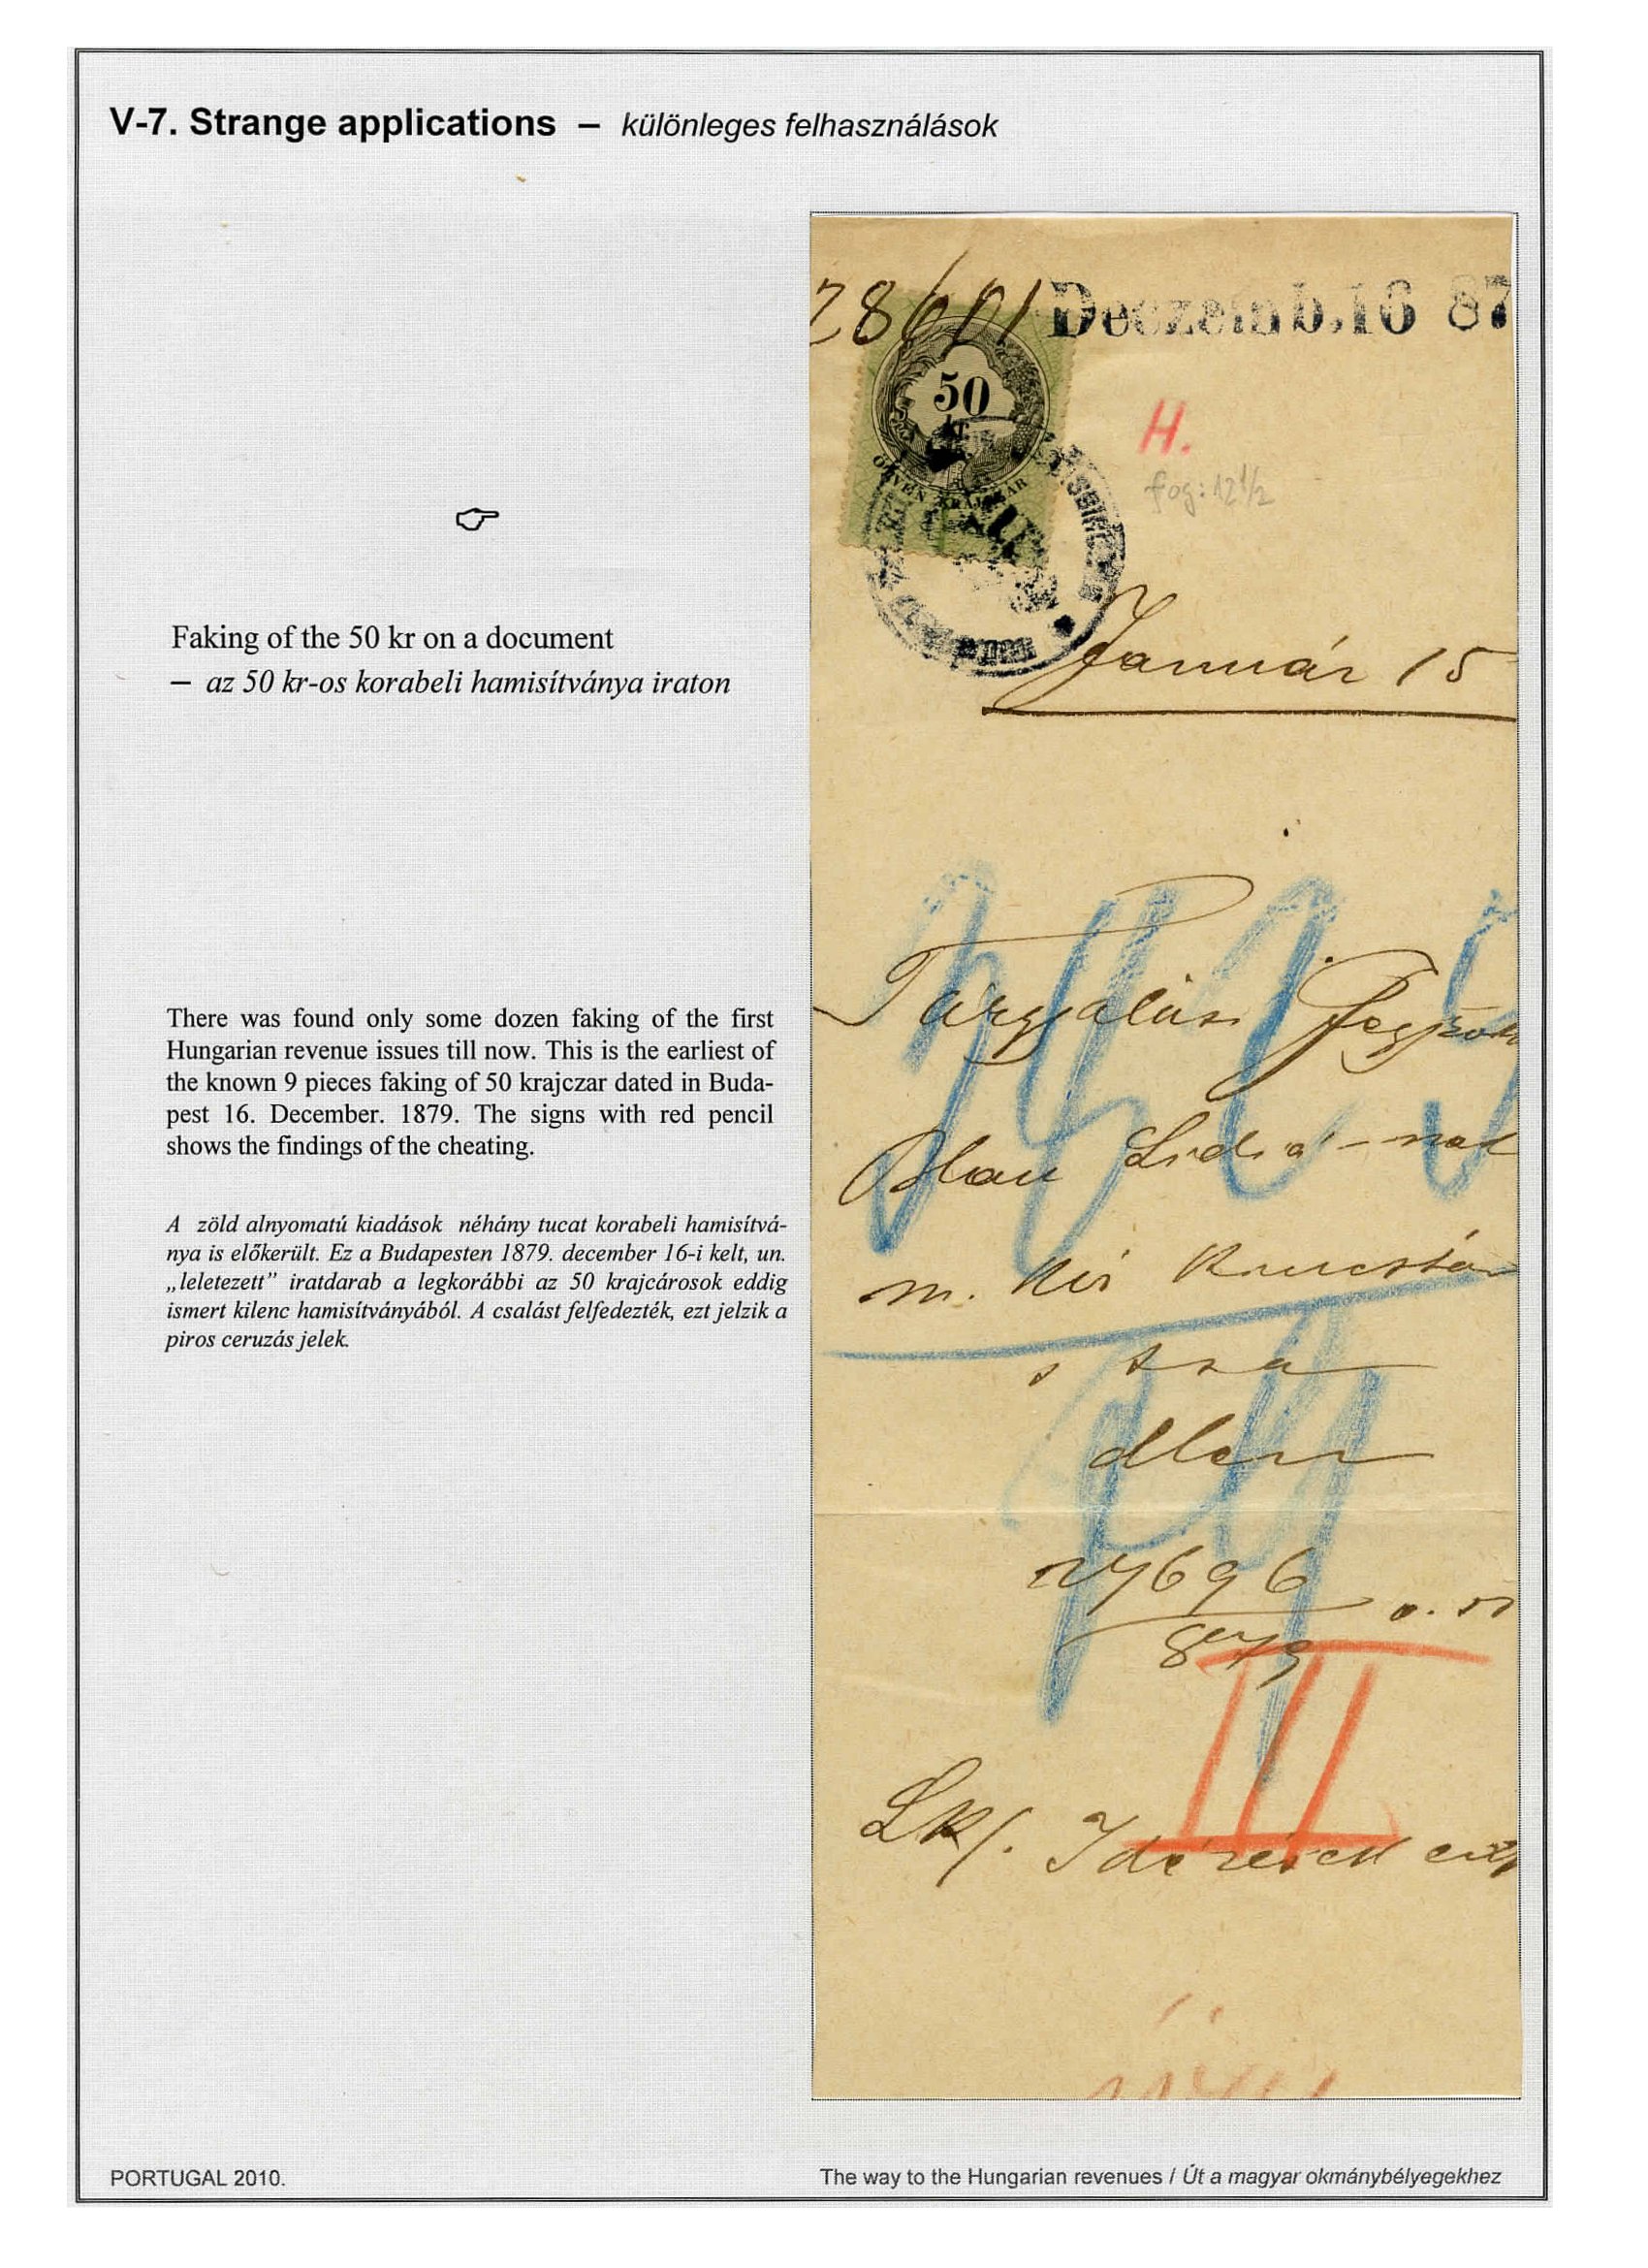 V-7. Strange applications – különleges felhasználások
28601 Deczemb.16 87
50
kr.
ÖTVEN KRAJCZÁR
H.
fog: 12 1/2
Január 15
Faking of the 50 kr on a document
– az 50 kr-os korabeli hamisítványa iraton
There was found only some dozen faking of the first
Hungarian revenue issues till now. This is the earliest of
the known 9 pieces faking of 50 krajczar dated in Buda-
pest 16. December. 1879. The signs with red pencil
shows the findings of the cheating.
A zöld alnyomatú kiadások néhány tucat korabeli hamisítvá-
nya is előkerült. Ez a Budapesten 1879. december 16-i kelt, un.
„leletezett” iratdarab a legkorábbi az 50 krajcárosok eddig
ismert kilenc hamisítványából. A csalást felfedezték, ezt jelzik a
piros ceruzás jelek.
Tárgyalási
Blau Lidia-nak
m. kir
27696
879
III
PORTUGAL 2010.
The way to the Hungarian revenues / Út a magyar okmánybélyegekhez